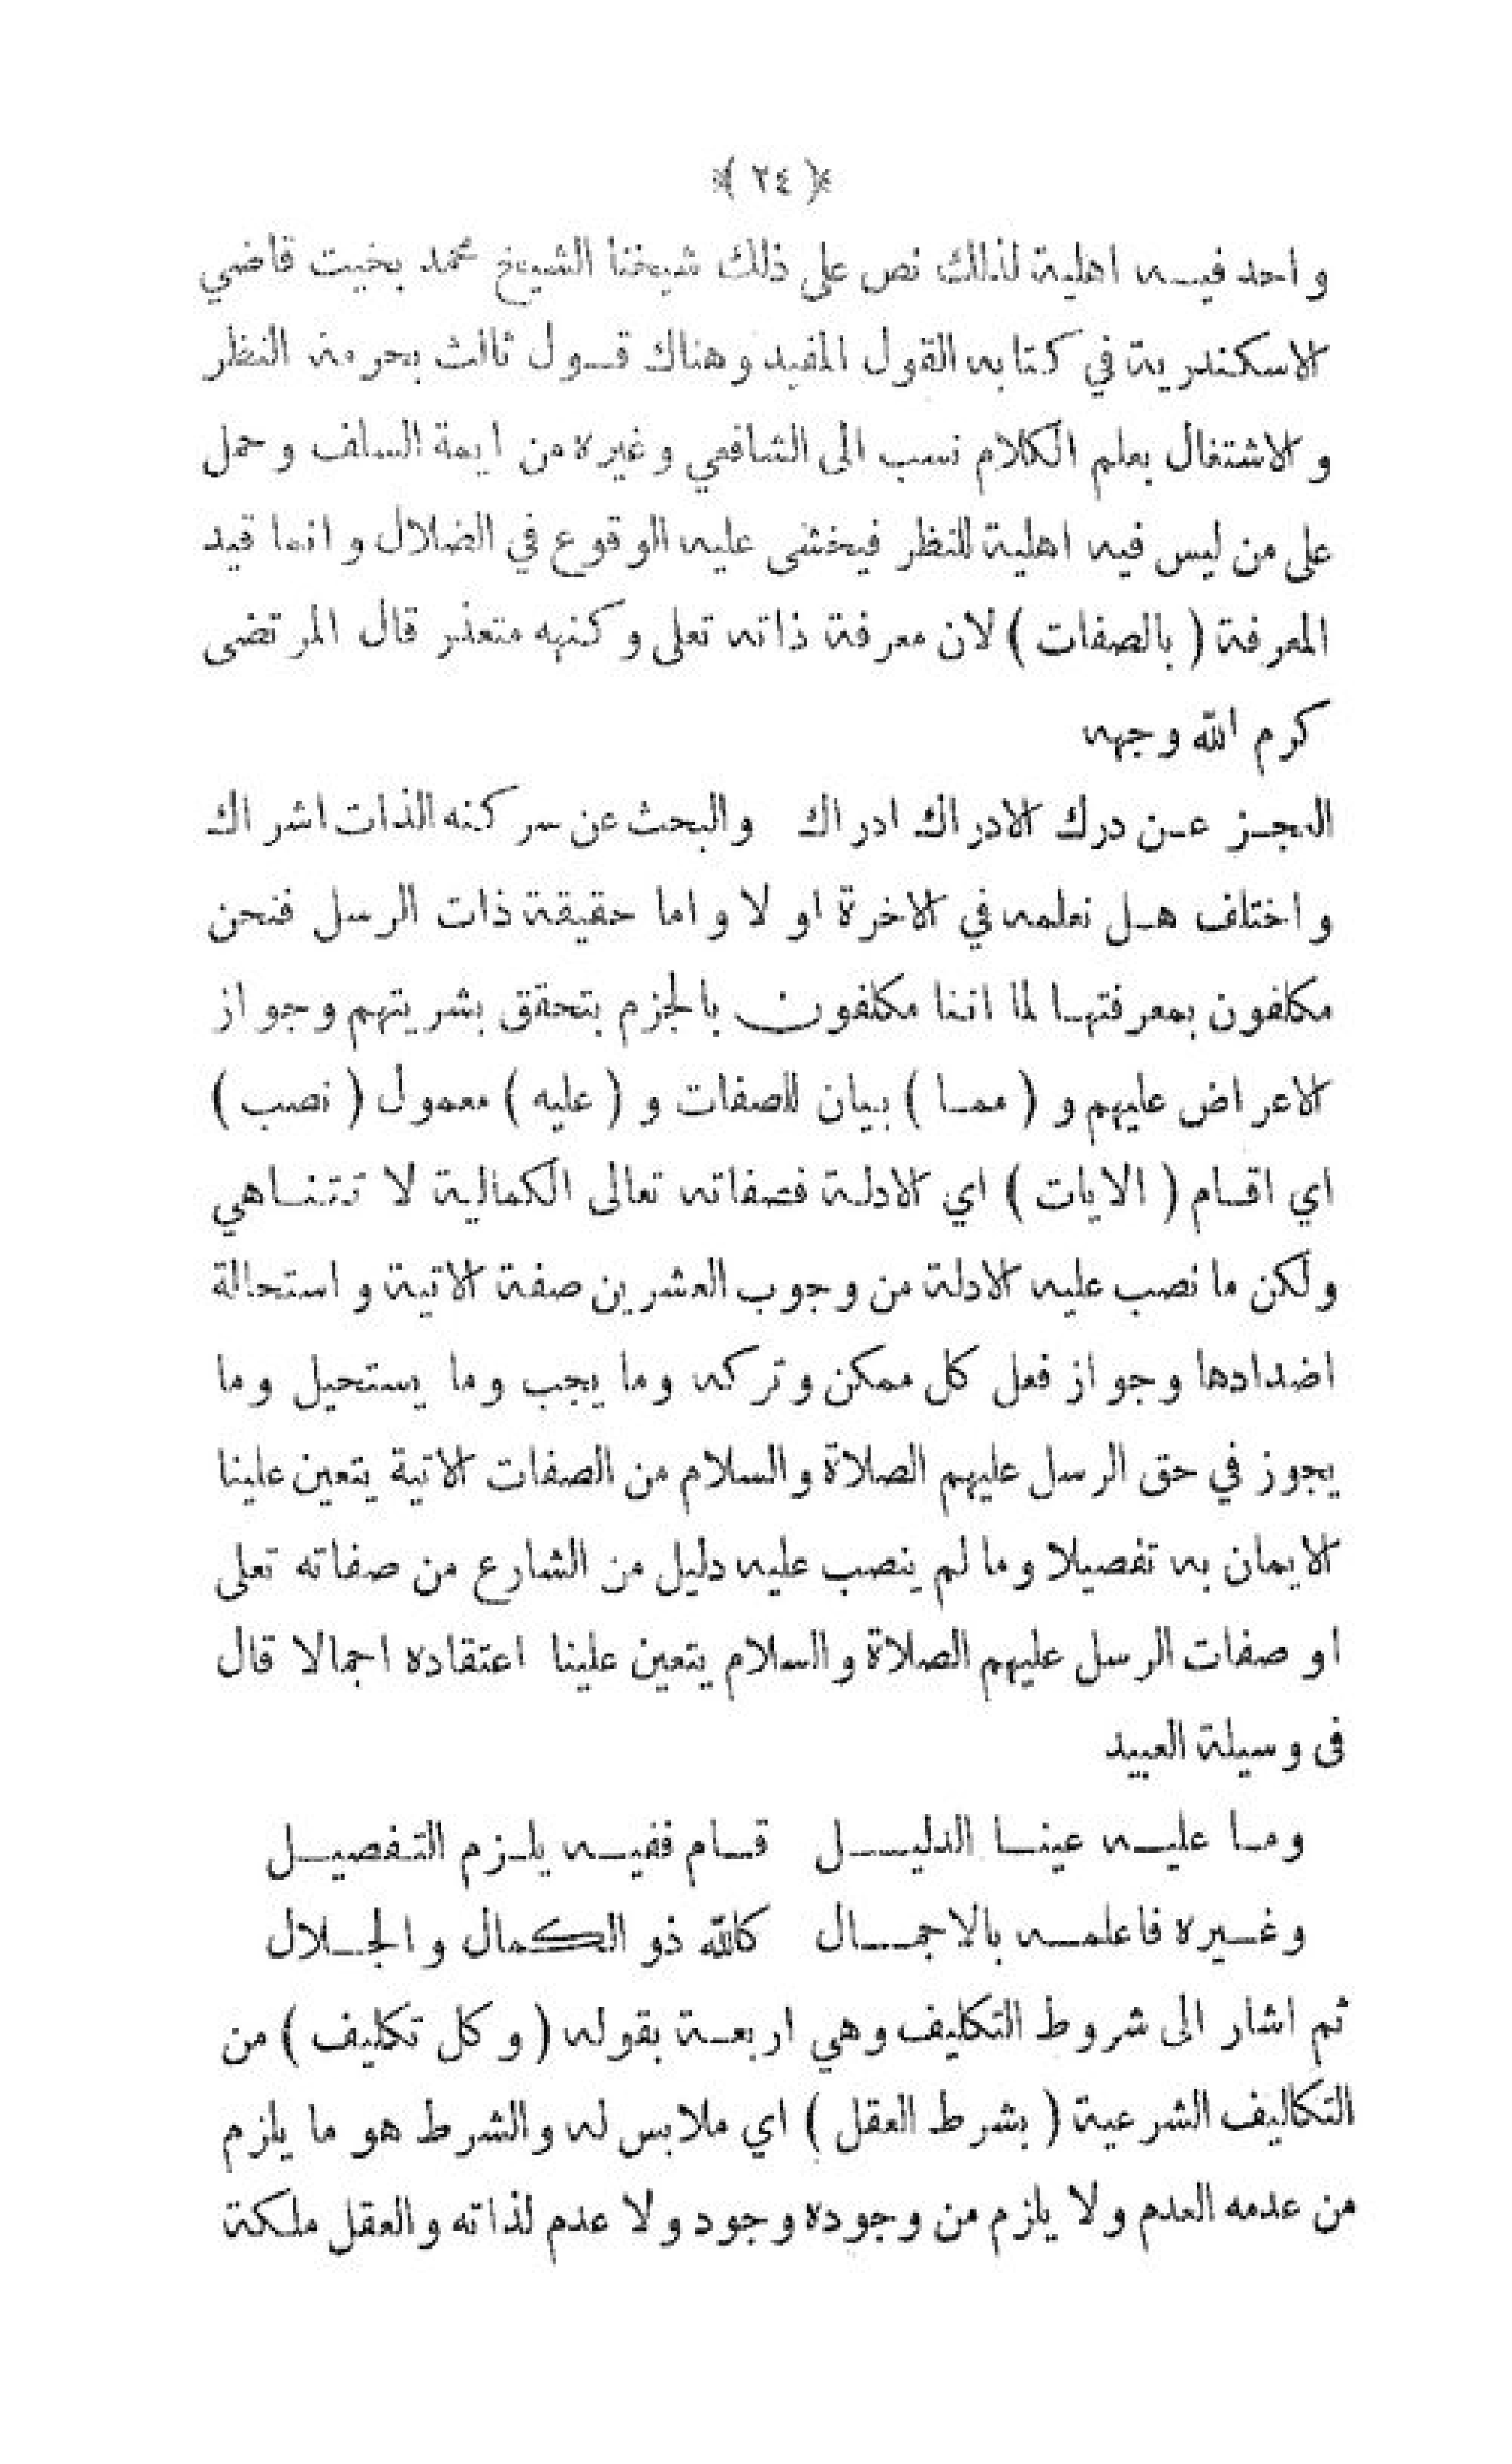 ﴿ ٢٤ ﴾
واحد فيه اهلية لذلك نص على ذلك شيخنا الشيخ محمد بخيت قاضي
الاسكندرية في كتابه القول المفيد وهناك قول ثالث بحرمة النظر
والاشتغال بعلم الكلام نسب الى الشافعي وغيره من ايمة السلف وحمل
على من ليس فيه اهلية للنظر فيخشى عليه الوقوع في الضلال وانما قيد
المعرفة ( بالصفات ) لان معرفة ذاته تعلى وكنهه متعذر قال المرتضى
كرم الله وجهه
العجز عن درك الادراك ادراك والبحث عن سر كنه الذات اشراك
واختلف هل نعلمه في الاخرة او لا واما حقيقة ذات الرسل فنحن
مكلفون بمعرفتها لما اننا مكلفون بالجزم بتحقق بشريتهم وجواز
الاعراض عليهم و ( مما ) بيان للصفات و ( عليه ) معمول ( نصب )
اي اقام ( الايات ) اي الادلة فصفاته تعالى الكمالية لا تتناهي
ولكن ما نصب عليه الادلة من وجوب العشرين صفة الاتية واستحالة
اضدادها وجواز فعل كل ممكن وتركه وما يجب وما يستحيل وما
يجوز في حق الرسل عليهم الصلاة والسلام من الصفات الاتية يتعين علينا
الايمان به تفصيلا وما لم ينصب عليه دليل من الشارع من صفاته تعلى
او صفات الرسل عليهم الصلاة والسلام يتعين علينا اعتقاده اجمالا قال
فى وسيلة العبيد
وما عليه عينا الدليل قام ففيه يلزم التفصيل
وغيره فاعلمه بالاجمال كالله ذو الكمال والجلال
ثم اشار الى شروط التكليف وهي اربعة بقوله ( وكل تكليف ) من
التكاليف الشرعية ( بشرط العقل ) اي ملابس له والشرط هو ما يلزم
من عدمه العدم ولا يلزم من وجوده وجود ولا عدم لذاته والعقل ملكة